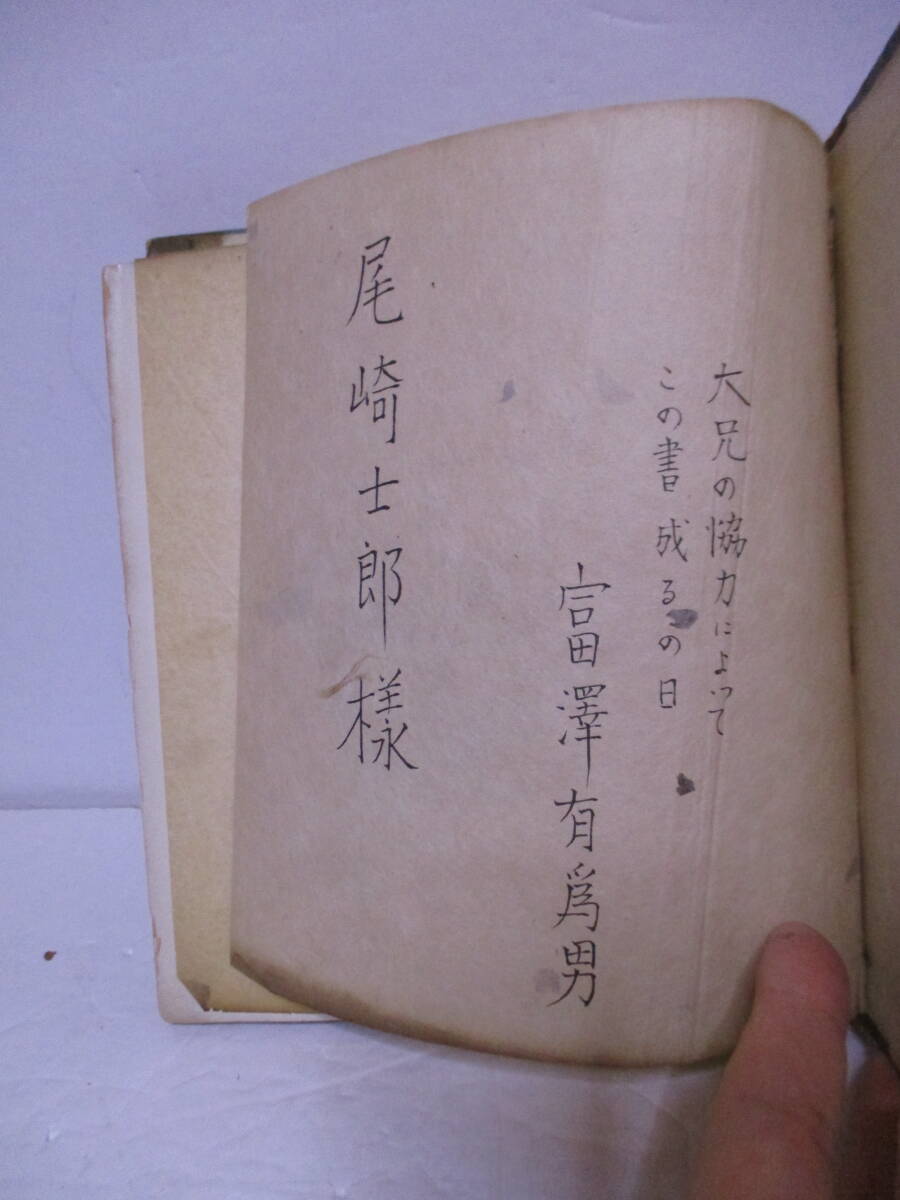 大兄の協力によって
この書成るの日
富澤有爲男
尾崎士郎樣